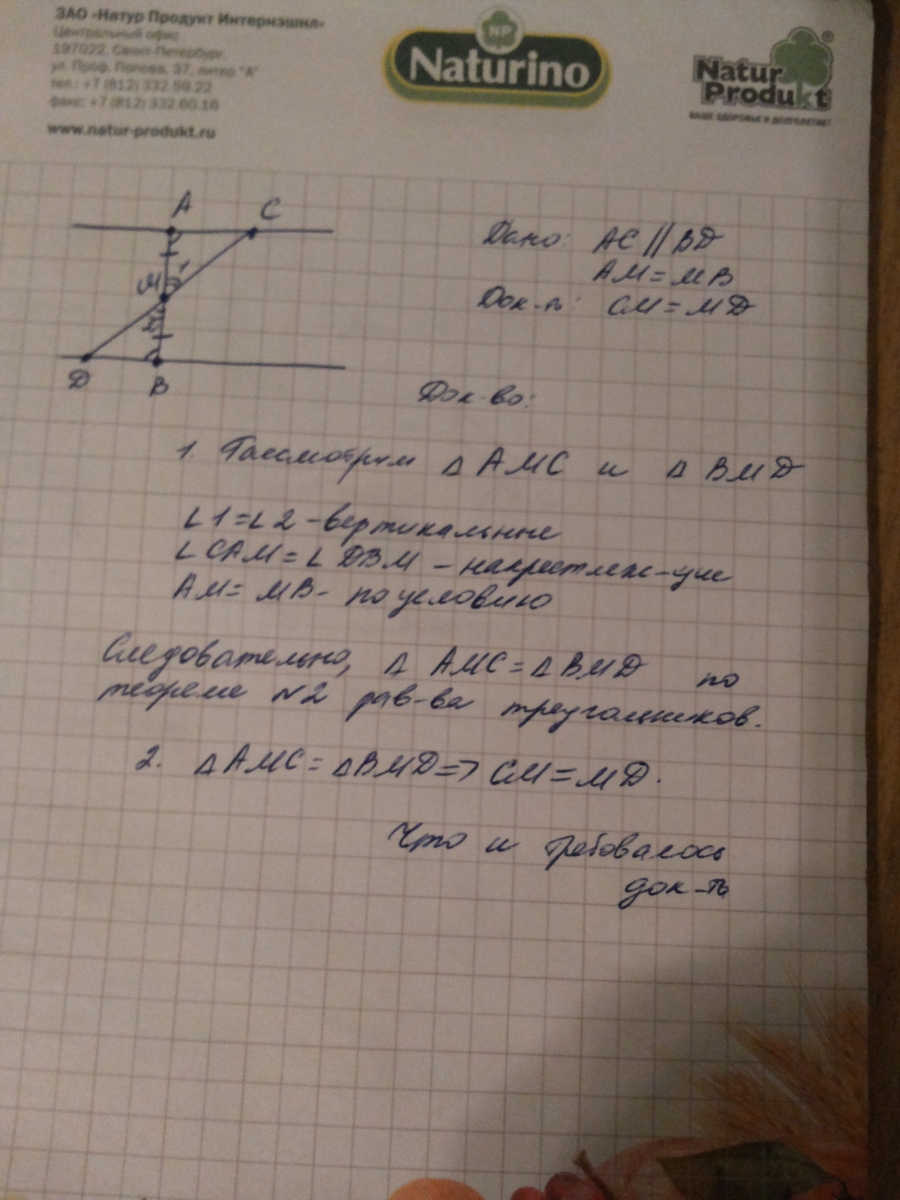 ЗАО «Натур Продукт Интернэшнл»
Центральный офис
197022, Санкт-Петербург,
ул. Проф. Попова, 37, литер "А"
тел.: +7 (812) 332 59.22
факс: +7 (812) 332.60.16
www.natur-produkt.ru
NP
Naturino
Natur
Produkt®
ВАШЕ ЗДОРОВЬЕ И ДОЛГОЛЕТИЕ!
A C
M 1
2
D B
Дано: AC || BD
AM = MB
Док-ть: CM = MD
Док-во:
1. Рассмотрим Δ AMC и Δ BMD
∠1=∠2 - вертикальные
∠CAM=∠DBM - накрестлеж-щие
AM= MB - по условию
Следовательно, Δ AMC = Δ BMD по
теореме №2 рав-ва треугольников.
2. ΔAMC = ΔBMD => CM = MD.
Что и требовалось
док-ть